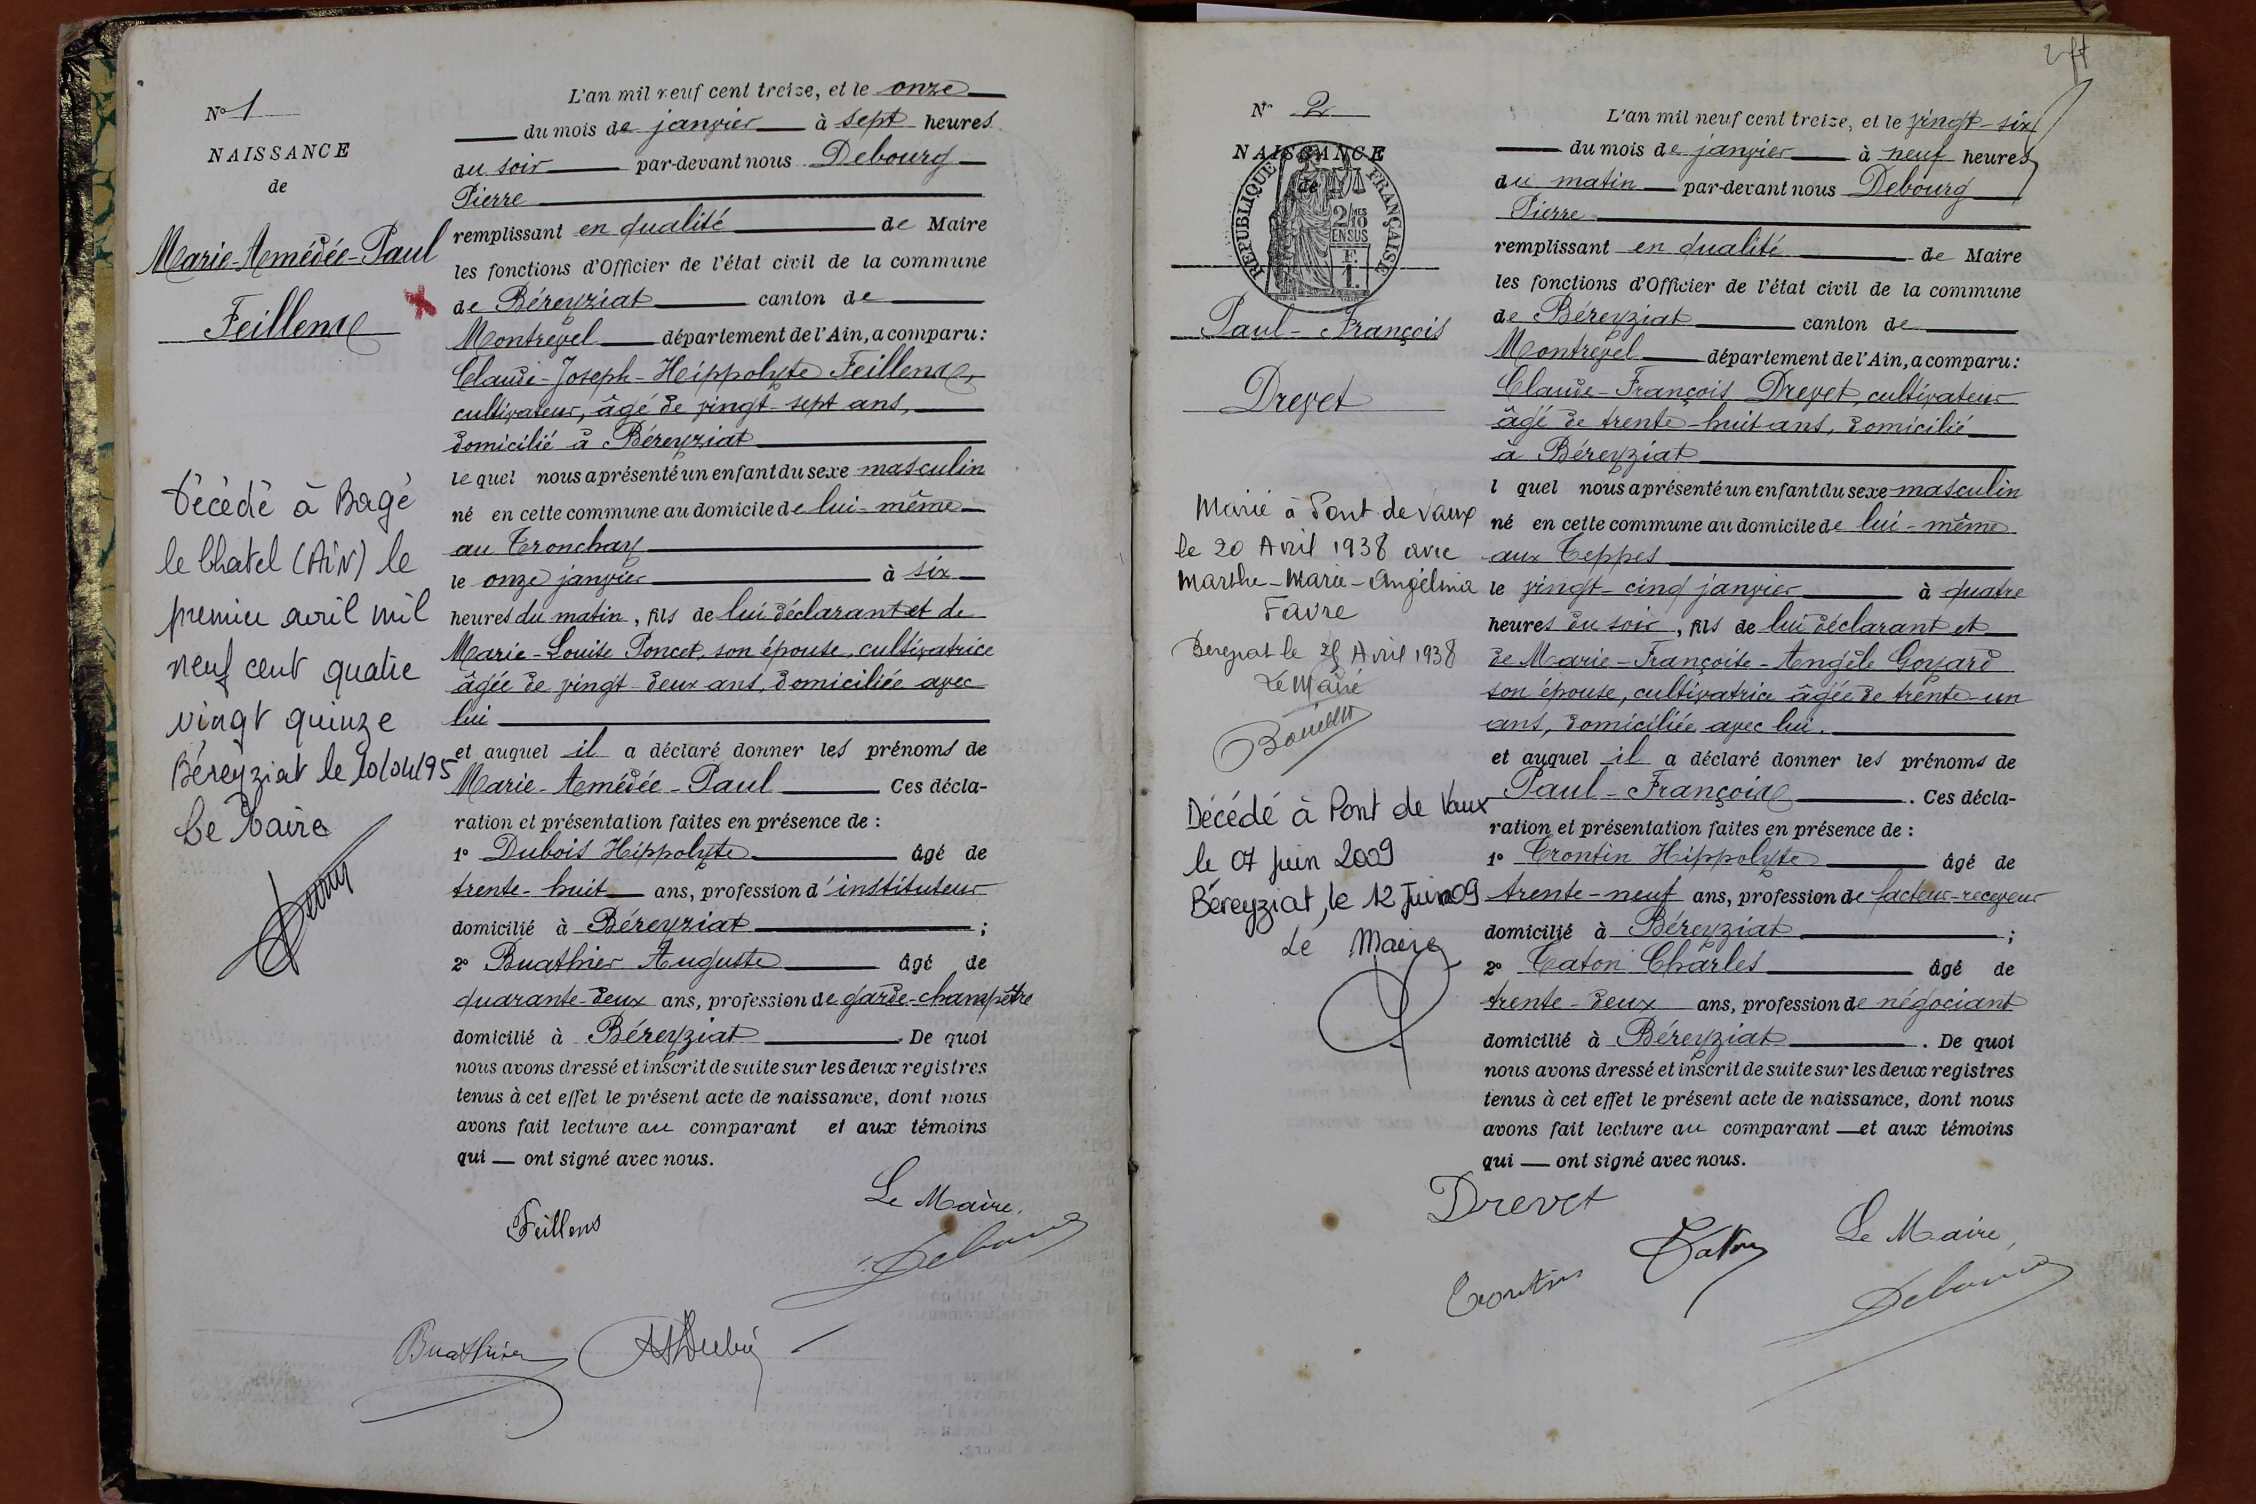 N° 1
NAISSANCE
de
Marie-Amédée-Paul
Feillens
Décédé à Bagé
le Chatel (AiN) le
premier avril mil
neuf cent quatre
vingt quinze
Béreyziat le 10/04/95
Le Maire
L'an mil neuf cent treize, et le onze
du mois de janvier à sept heures
du soir par-devant nous Debourg
Pierre
remplissant en qualité de Maire
les fonctions d'Officier de l'état civil de la commune
de Béreyziat canton de
Montrevel département de l'Ain, a comparu :
Claude-Joseph-Hippolyte Feillens,
cultivateur, âgé de vingt-sept ans,
domicilié à Béreyziat
le quel nous a présenté un enfant du sexe masculin
né en cette commune au domicile de lui-même
au Tronchay
le onze janvier à six
heures du matin, fils de lui déclarant et de
Marie-Louise Poncet, son épouse, cultivatrice
âgée de vingt-deux ans, domiciliée avec
lui
et auquel il a déclaré donner les prénoms de
Marie-Amédée-Paul Ces décla-
ration et présentation faites en présence de :
1° Dubois Hippolyte âgé de
trente-huit ans, profession d'instituteur
domicilié à Béreyziat ;
2° Buathier Auguste âgé de
quarante-deux ans, profession de garde-champêtre
domicilié à Béreyziat . De quoi
nous avons dressé et inscrit de suite sur les deux registres
tenus à cet effet le présent acte de naissance, dont nous
avons fait lecture au comparant et aux témoins
qui — ont signé avec nous.
Feillens
Le Maire,
Debourg
Buathier
N° 2
NAISSANCE
de
REPUBLIQUE FRANÇAISE
2/10
MES
EN SUS
F.
1.
Paul-François
Drevet
Marié à Pont de Vaux
le 20 Avril 1938 avec
Marthe-Marie-Angélina
Favre
Bereyziat le 25 Avril 1938
Le Maire
Décédé à Pont de Vaux
le 07 Juin 2009
Béreyziat, le 12 Juin 09
Le Maire
L'an mil neuf cent treize, et le vingt-six
du mois de janvier à neuf heures
du matin par-devant nous Debourg
Pierre
remplissant en qualité de Maire
les fonctions d'Officier de l'état civil de la commune
de Béreyziat canton de
Montrevel département de l'Ain, a comparu :
Claude-François Drevet, cultivateur
âgé de trente-huit ans, domicilié
à Béreyziat
l quel nous a présenté un enfant du sexe masculin
né en cette commune au domicile de lui-même
aux Teppes
le vingt-cinq janvier à quatre
heures du soir, fils de lui déclarant et
de Marie-Françoise-Angèle Goyard
son épouse, cultivatrice âgée de trente-un
ans, domiciliée avec lui.
et auquel il a déclaré donner les prénoms de
Paul-François . Ces décla-
ration et présentation faites en présence de :
1° Trontin Hippolyte âgé de
trente-neuf ans, profession de facteur-receveur
domicilié à Béreyziat ;
2° Caton Charles âgé de
trente-deux ans, profession de négociant
domicilié à Béreyziat . De quoi
nous avons dressé et inscrit de suite sur les deux registres
tenus à cet effet le présent acte de naissance, dont nous
avons fait lecture au comparant — et aux témoins
qui — ont signé avec nous.
Drevet
Le Maire,
Trontin
Debourg